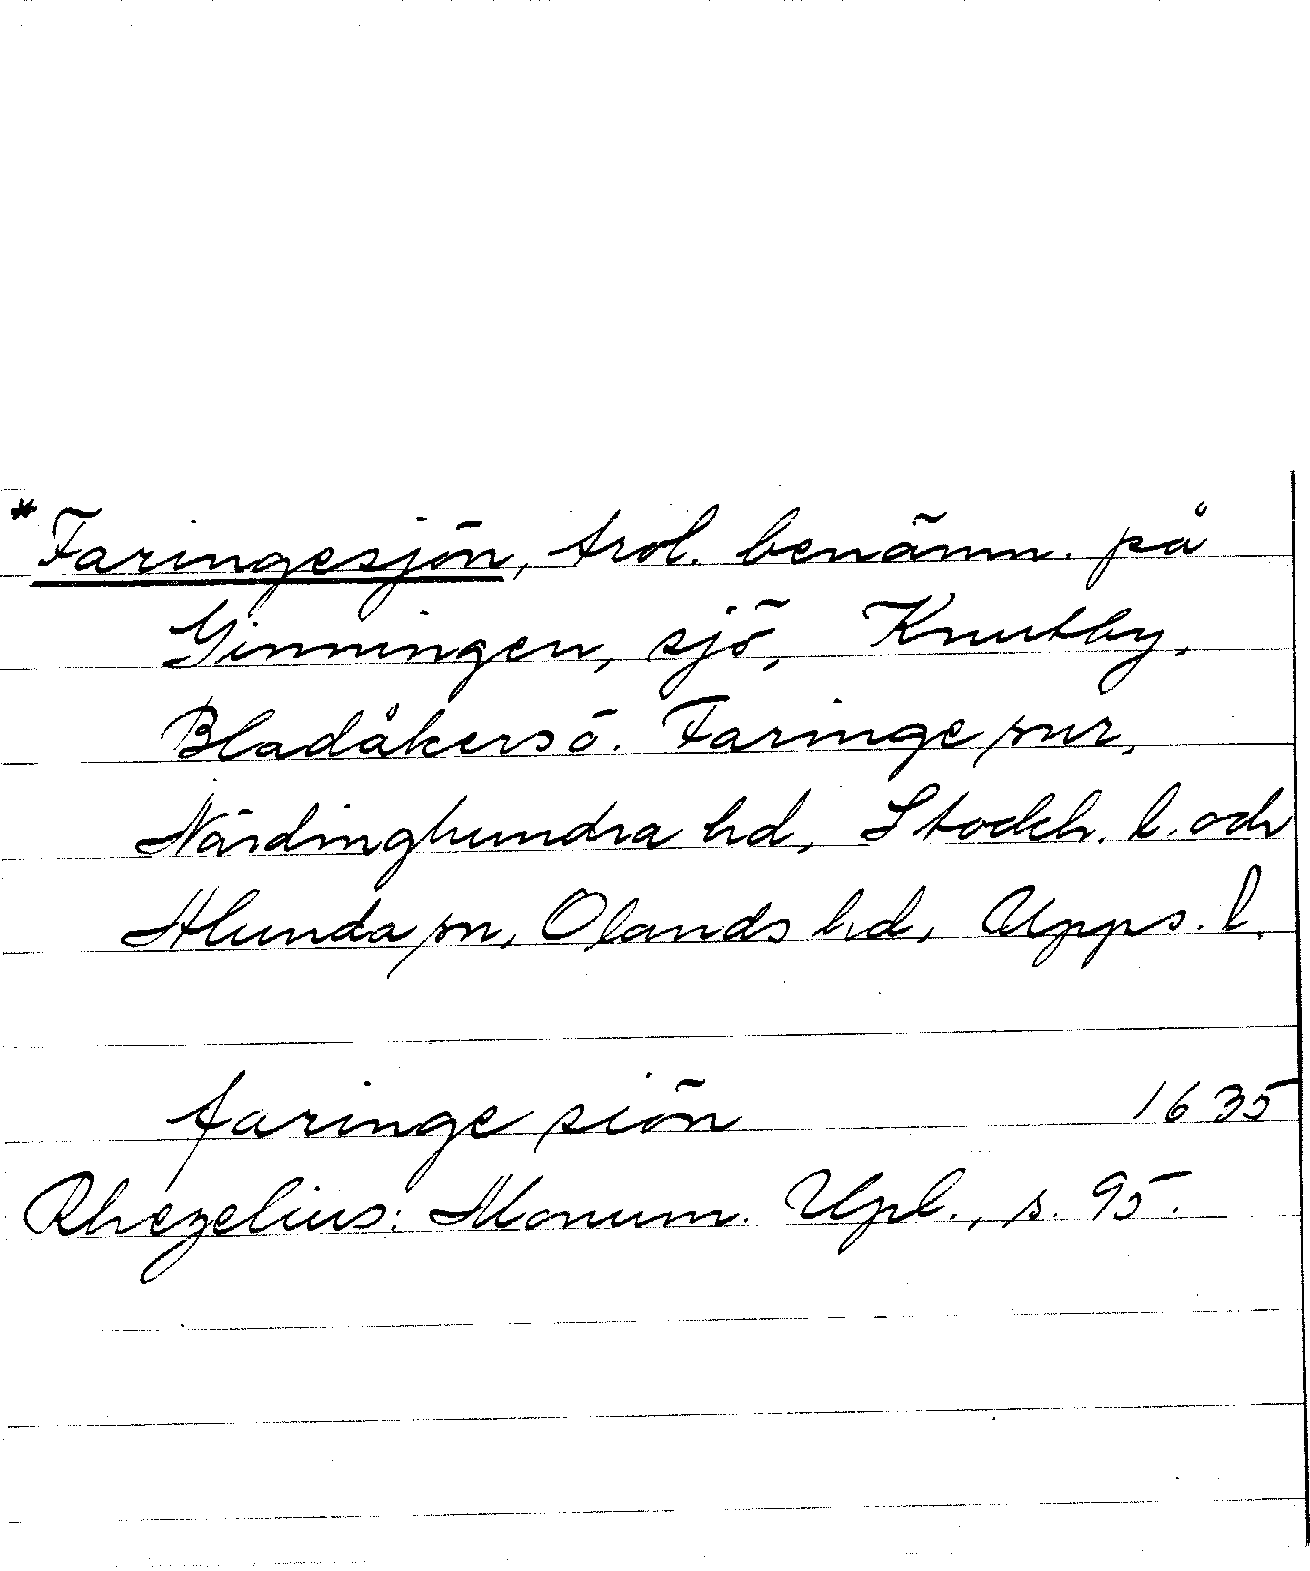 *Faringesjön, trol. benämn. på
Ginningen, sjö, Knutby,
Bladåker o. Faringe snr,
Närdinghundra hd, Stockh. l. och
Alunda sn, Olands hd, Upps. l.
faringe siön 1635
Rhezelius: Monum. Upl., s. 95.